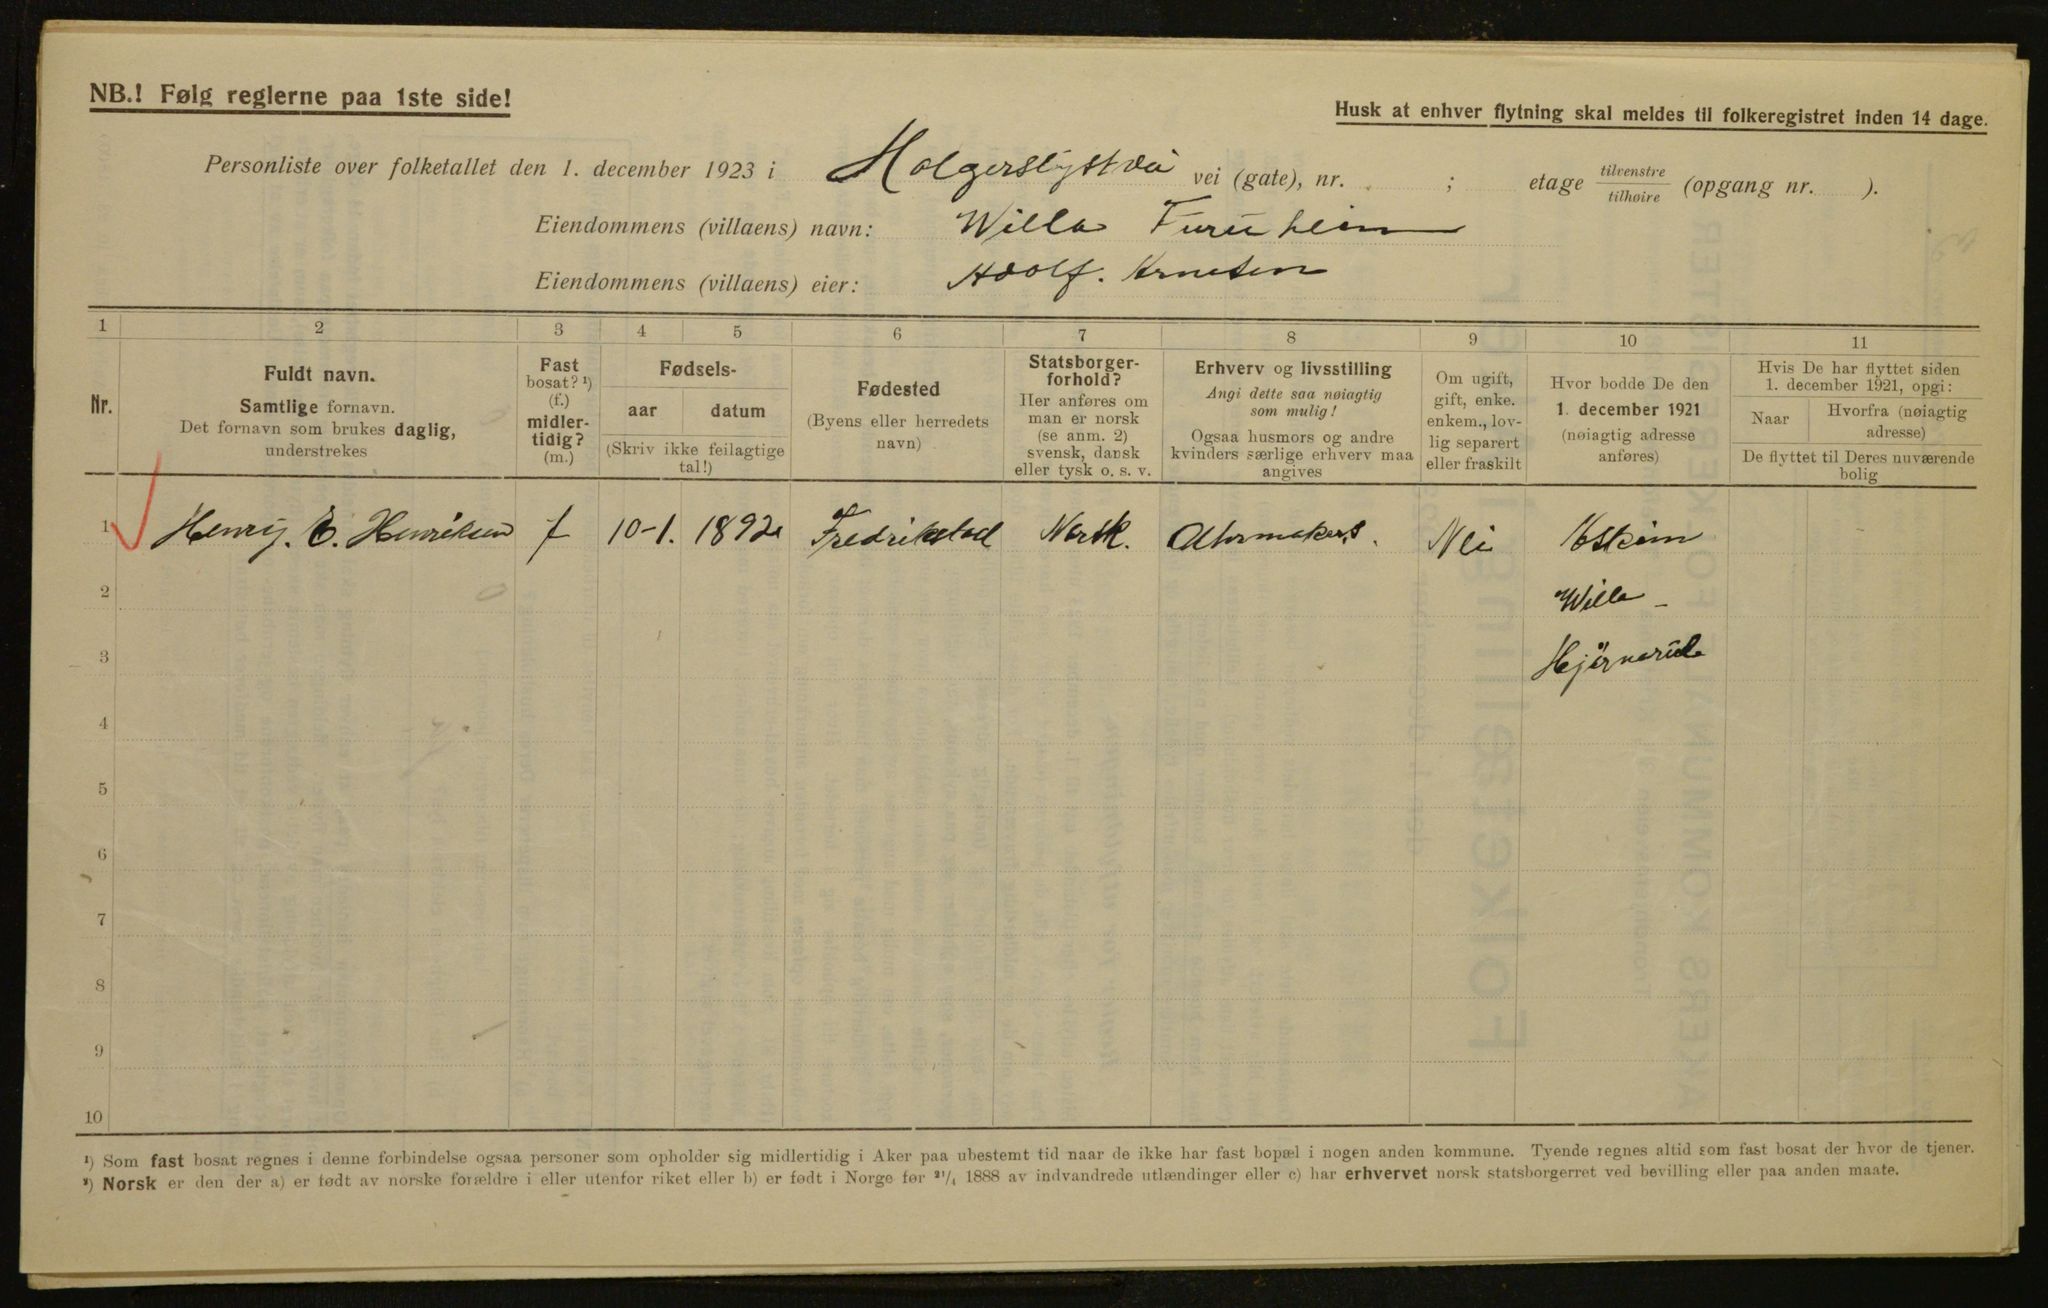 NB.! Følg reglerne paa 1ste side!
Husk at enhver flytning skal meldes til folkeregistret inden 14 dage.
Personliste over folketallet den 1. december 1923 i Holgerslystvei vei (gate), nr. ; etage tilvenstre/tilhøire (opgang nr. ).
Eiendommens (villaens) navn: Willa Furuheim
Eiendommens (villaens) eier: Adolf. Arnesen
1 2 3 4 5 6 7 8 9 10 11
Nr.
Fuldt navn.
Samtlige fornavn.
Det fornavn som brukes daglig,
understrekes
Fast
bosat? ¹)
(f.)
midler-
tidig?
(m.)
Fødsels-
aar datum
(Skriv ikke feilagtige
tal!)
Fødested
(Byens eller herredets
navn)
Statsborger-
forhold?
Her anføres om
man er norsk
(se anm. 2)
svensk, dansk
eller tysk o. s. v.
Erhverv og livsstilling
Angi dette saa nøiagtig
som mulig!
Ogsaa husmors og andre
kvinders særlige erhverv maa
angives
Om ugift,
gift, enke.
enkem., lov-
lig separert
eller fraskilt
Hvor bodde De den
1. december 1921
(nøiagtig adresse
anføres)
Hvis De har flyttet siden
1. december 1921, opgi:
Naar
Hvorfra (nøiagtig
adresse)
De flyttet til Deres nuværende
bolig
1 Henry. E. Henriksen f 10-1. 1892 Fredrikstad Norsk. Uhrmakers. Nei Askim
2 Willa
3
4
5
6
7
8
9
10
¹) Som fast bosat regnes i denne forbindelse ogsaa personer som opholder sig midlertidig i Aker paa ubestemt tid naar de ikke har fast bopæl i nogen anden kommune. Tyende regnes altid som fast bosat der hvor de tjener.
²) Norsk er den der a) er født av norske forældre i eller utenfor riket eller b) er født i Norge før ²¹/₄ 1888 av indvandrede utlændinger eller c) har erhvervet norsk statsborgerret ved bevilling eller paa anden maate.